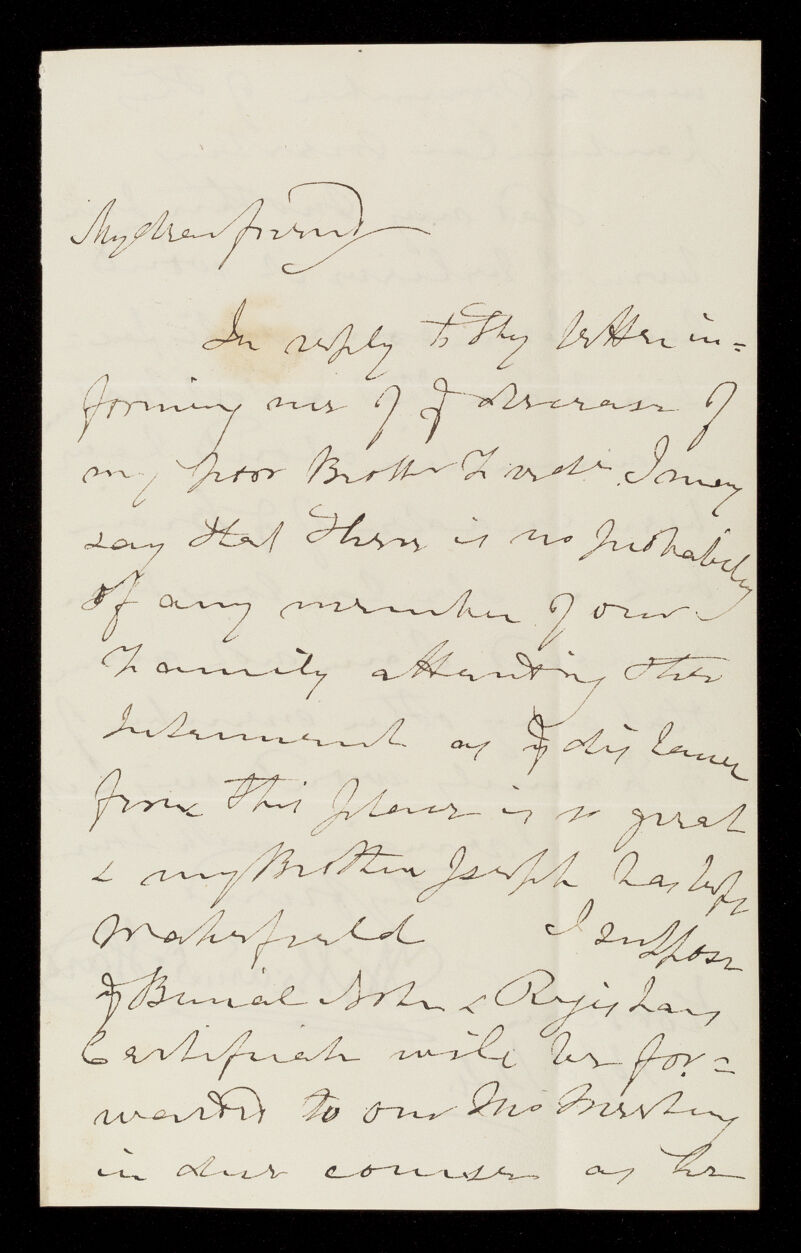 My dear friend
In reply to Thy letter in=
forming me of ye decease of
my poor Brother Fredk. I may
say that there is no probability
of any member of our
Family attending the
Interment as ye distance
from this place is so great
& my Brother Joseph has left
Wakefield I suppose
ye Burial Note & Registrars
Certificate will be for=
warded to our Mo Meeting
in due course as he